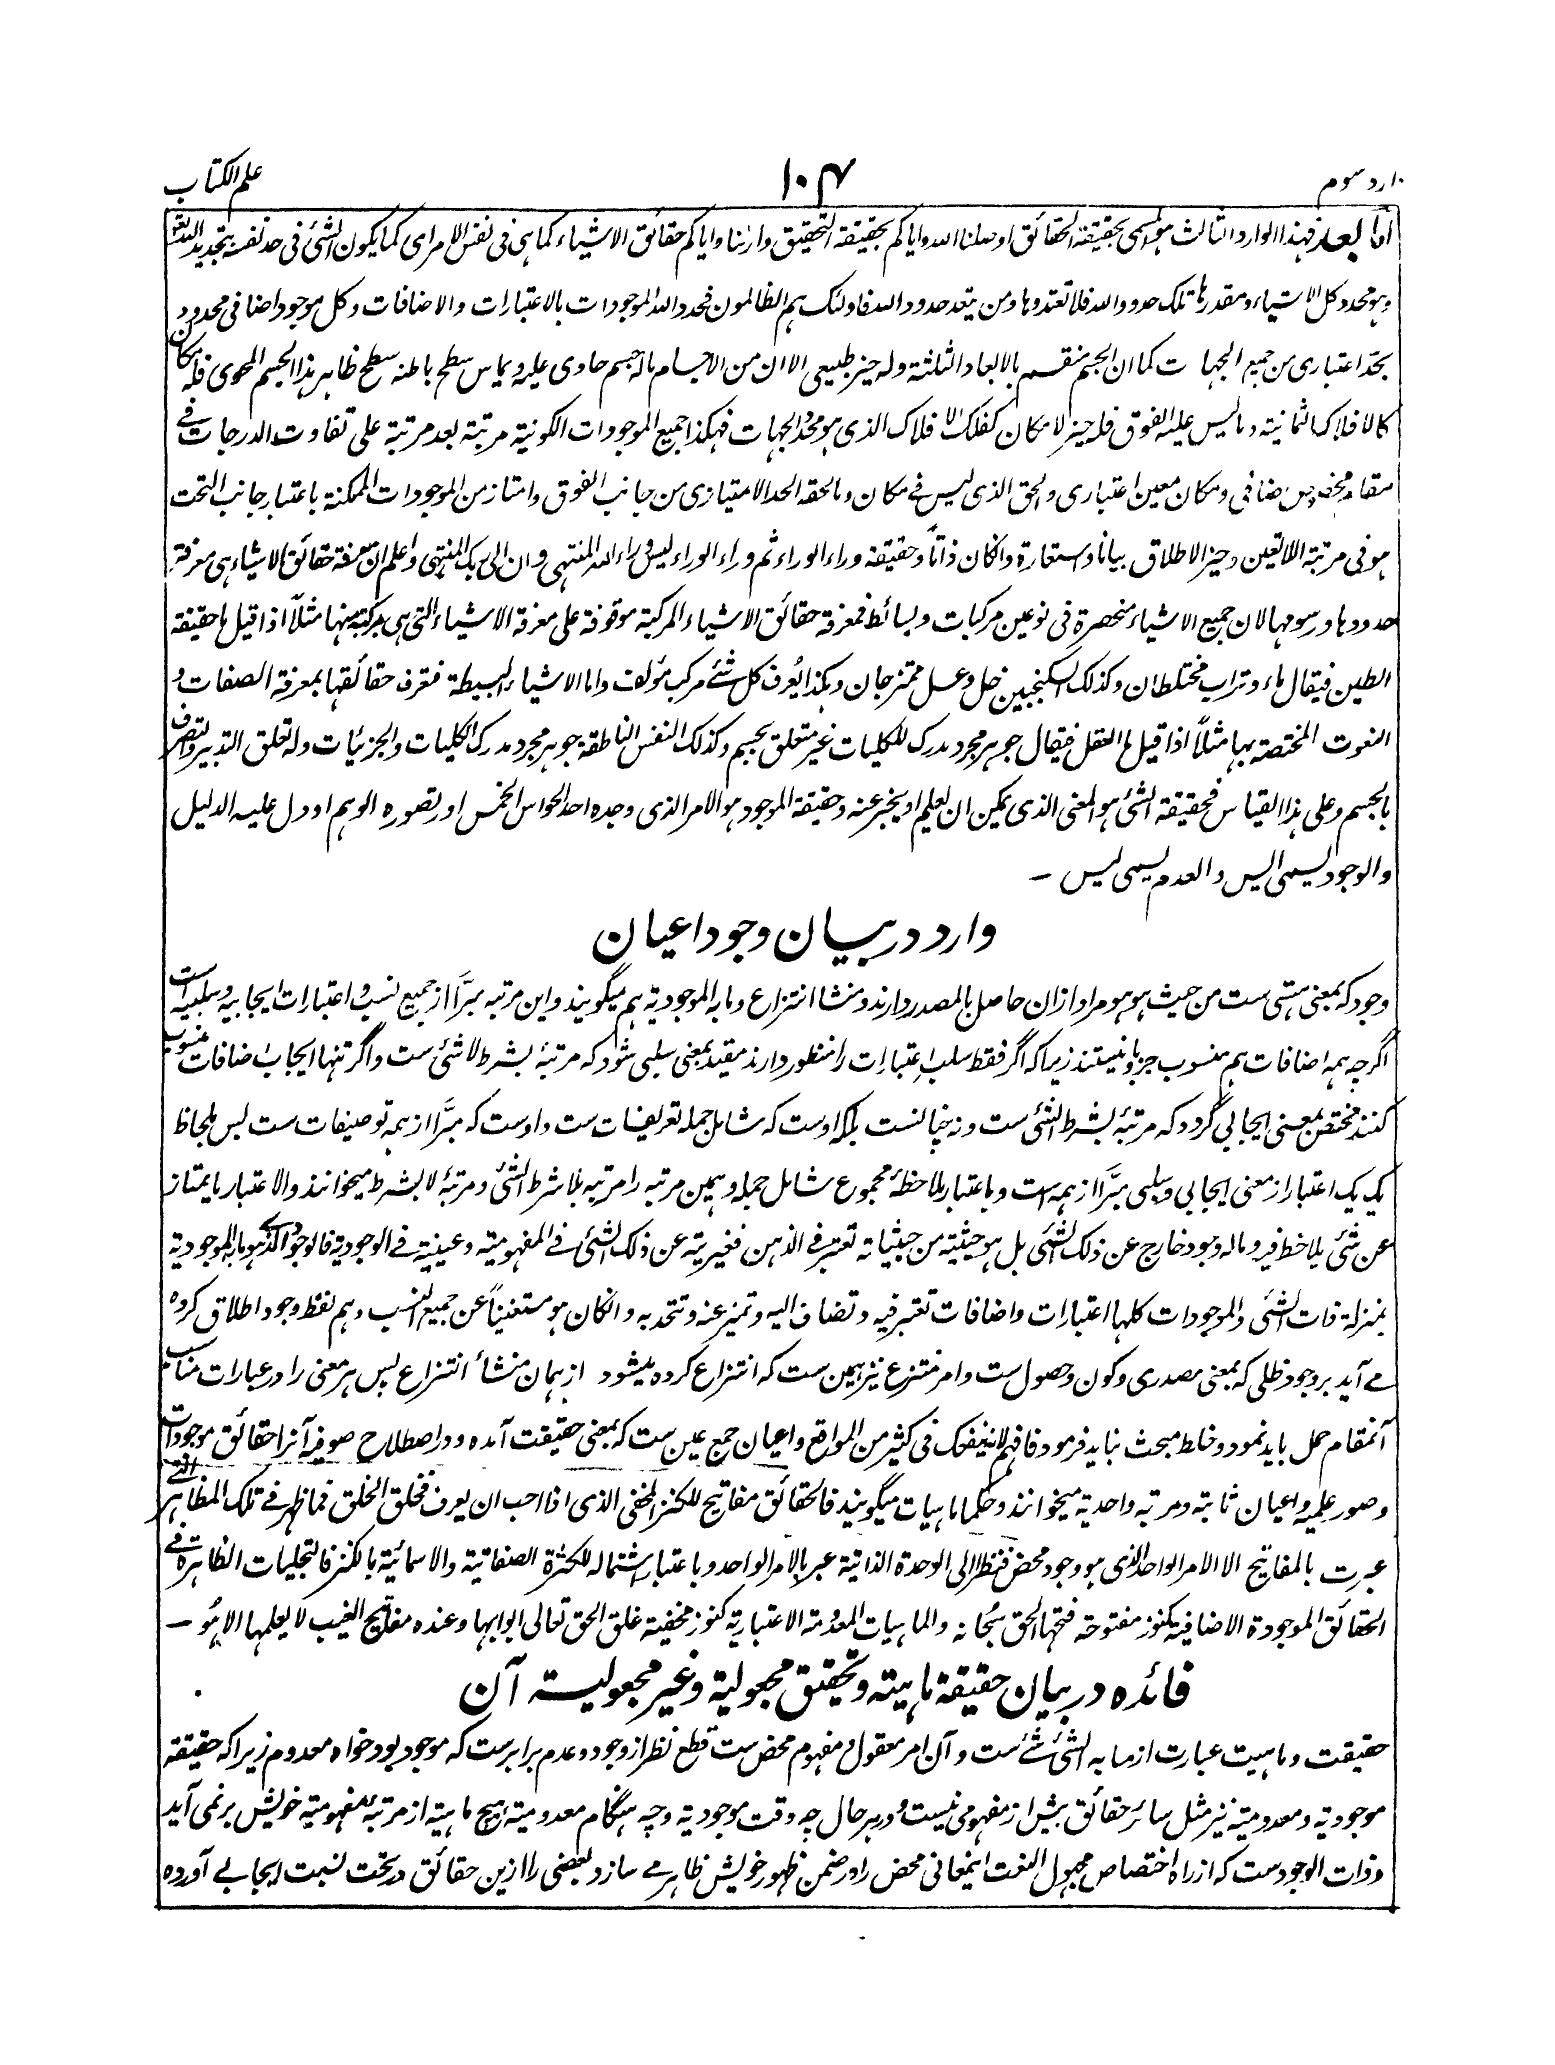 وارد سوم
۱۰۴
علم الکتاب
اما بعد فهذا الوارد الثالث هو المسمی بحقیقة الحقائق اوصلنا الله وایاکم بحقیقة التحقیق وارانا وایاکم حقائق الاشیاء کما هی فی نفس الامر ای کما یکون الشئ فی حد نفسه بتجدید الله
وهو محدد کل الاشیاء ومقدرها تلک حدود الله فلا تعتدوها ومن یتعد حدود الله فاولئک هم الظالمون فحدد الله الموجودات بالاعتبارات والاضافات وکل موجود اضافی محدود
بحد اعتباری من جمیع الجهات کما ان الجسم منقسم بالابعاد الثلثة وله حیز طبیعی الا ان من الاجسام ماله جسم حاوی علیه ویماس سطح باطنه سطح ظاهر هذا الجسم المحوی فله مکان
کالافلاک الثمانیة وما لیس علیه الفوق فله حیز لا مکان کفلک الافلاک الذی هو محدد الجهات فهکذا جمیع الموجودات الکونیة مرتبة بعد مرتبة علی تفاوت الدرجات فی
مقام مخصوص اضافی ومکان معین اعتباری والحق الذی لیس فی مکان وما لحقه الحد الامتیازی من جانب الفوق وامتاز من الموجودات الممکنة باعتبار جانب التحت
هو فی مرتبة اللاتعین وحیز الاطلاق بیانا واستعارة وان کان ذاتاً وحقیقة وراء الوراء ثم وراء الوراء لیس وراء الله المنتهی وان الی ربک المنتهی واعلم ان معرفة حقائق الاشیاء هی معرفة
حدودها ورسومها لان جمیع الاشیاء منحصرة فی نوعین مرکبات وبسائط فمعرفة حقائق الاشیاء المرکبة موقوفة علی معرفة الاشیاء التی هی مرکبة منها مثلاً اذا قیل ما حقیقة
الطین فیقال ماء وتراب مختلطان وکذلک السکنجبین خل وعسل ممتزجان وهکذا یُعرف کل شئے مرکب مؤلف واما الاشیاء البسیطة فتعرف حقائقها بمعرفة الصفات و
النعوت المختصة بها مثلاً اذا قیل ما العقل فیقال جوهر مجرد مدرک للکلیات غیر متعلق بجسم وکذلک النفس الناطقة جوهر مجرد مدرک الکلیات والجزئیات وله تعلق التدبیر والتصرف
بالجسم وعلی هذا القیاس فحقیقة الشئ هو المعنی الذی یمکن ان یعلم او یخبر عنه وحقیقة الموجود هو الامر الذی وجده احد الحواس الخمس او تصوره الوهم او دل علیه الدلیل
والوجود یسمی الیس والعدم یسمی لیس –
وارد در بیان وجود اعیان
وجود که بمعنی هستی ست من حیث هو هو مراد ازان حاصل بالمصدر دارند ومنشا انتزاع ومابه الموجودیة هم میگویند واین مرتبه مبرَّا از جمیع نسب و اعتبارات ایجابیه وسلبیه است
اگرچه همه اضافات هم منسوب جز باو نیستند زیرا که اگر فقط سلب اعتبارات را منظور دارند مقید بمعنی سلبی شود که مرتبۂ بشرط لا شئ ست واگر تنها ایجاب اضافات منسوب
کنند مختص بمعنی ایجابی گردد که مرتبۂ بشرط الشئ ست ونه چنانست بلکه اوست که شامل جمله تعریفات ست واوست که مبرَّا از همه توصیفات ست پس بلحاظ
یک یک اعتبار از معنی ایجابی وسلبی مبرَّا از همه است وباعتبار ملاحظۂ مجموع شامل جمله وهمین مرتبه را مرتبه بلا شرط الشئ ومرتبۂ لا بشرط میخوانند والاعتبار ما یمتاز
عن شئ یلاحظ فیه وماله وجود خارج عن ذلک الشئ بل هو حیثیة من حیثیاته تعتبر فی الذهن فغیریة عن ذلک الشئ فی المفهومیة وعینیة فی الوجودیة فالوجود الذی هو مابه الموجودیة
بمنزلة ذات الشئ والموجودات کلها اعتبارات واضافات تعتبر فیه وتضاف الیه وتمیز عنه وتتحد به وان کان هو مستغنیاً عن جمیع النسب وهم لفظ وجود اطلاق کرده
مے آید بر وجود ظلی که بمعنی مصدری وکون وحصول ست وامر منتزع نیز همین ست که انتزاع کرده میشود از همان منشأ انتزاع پس هر معنی را در عبارات مناسب
آنمقام حمل باید نمود وخلط مبحث نباید فرمود فافهم لانه ینفعک فی کثیر من المواقع واعیان جمع عین ست که بمعنی حقیقت آمده ودر اصطلاح صوفیه آنرا حقائق موجودات
وصور علمیه واعیان ثابته ومرتبه واحدیة میخوانند وحکما ماهیات میگویند فالحقائق مفاتیح للکنز المخفی الذی اذا احب ان یعرف فخلق الخلق فما ظهر فی تلک المظاهر التے
عبرت بالمفاتیح الا الامر الواحد الذی هو وجود محض فنظرا الی الوحدة الذاتیة عبر بالامر الواحد وباعتبار اشتماله للکثرة الصفاتیة والاسمائیة بالکنز فالتجلیات الظاهرة فے
الحقائق الموجودة الاضافیة کنوز مفتوحة فتحها الحق سُبحانه والماهیات المعدُومة الاعتباریة کنوز مخفیة غلق الحق تعالی ابوابها وعنده مفاتیح الغیب لا یعلمها الا هُو –
فائده در بیان حقیقة ماهیته وتحقیق مجعولیة وغیر مجعولیت آن
حقیقت وماهیت عبارت از مابه الشئ شئے ست وآن امر معقول ومفهوم محض ست قطع نظر از وجود وعدم برابرست که موجود بود خواه معدوم زیرا که حقیقة
موجودیة ومعدومیة نیز مثل سائر حقائق بیش از مفهومی نیست ودر هر حال چه وقت موجودیة وچه هنگام معدومیة هیچ ماهیة از مرتبۂ مفهومیة خویش بر نمی آید
وذات الوجود ست که از راه اختصاص مجهول النعت اینمعانی محض را در ضمن ظهور خویش ظاهر مے سازد بعضی را ازین حقائق در تحت نسبت ایجابے آورده